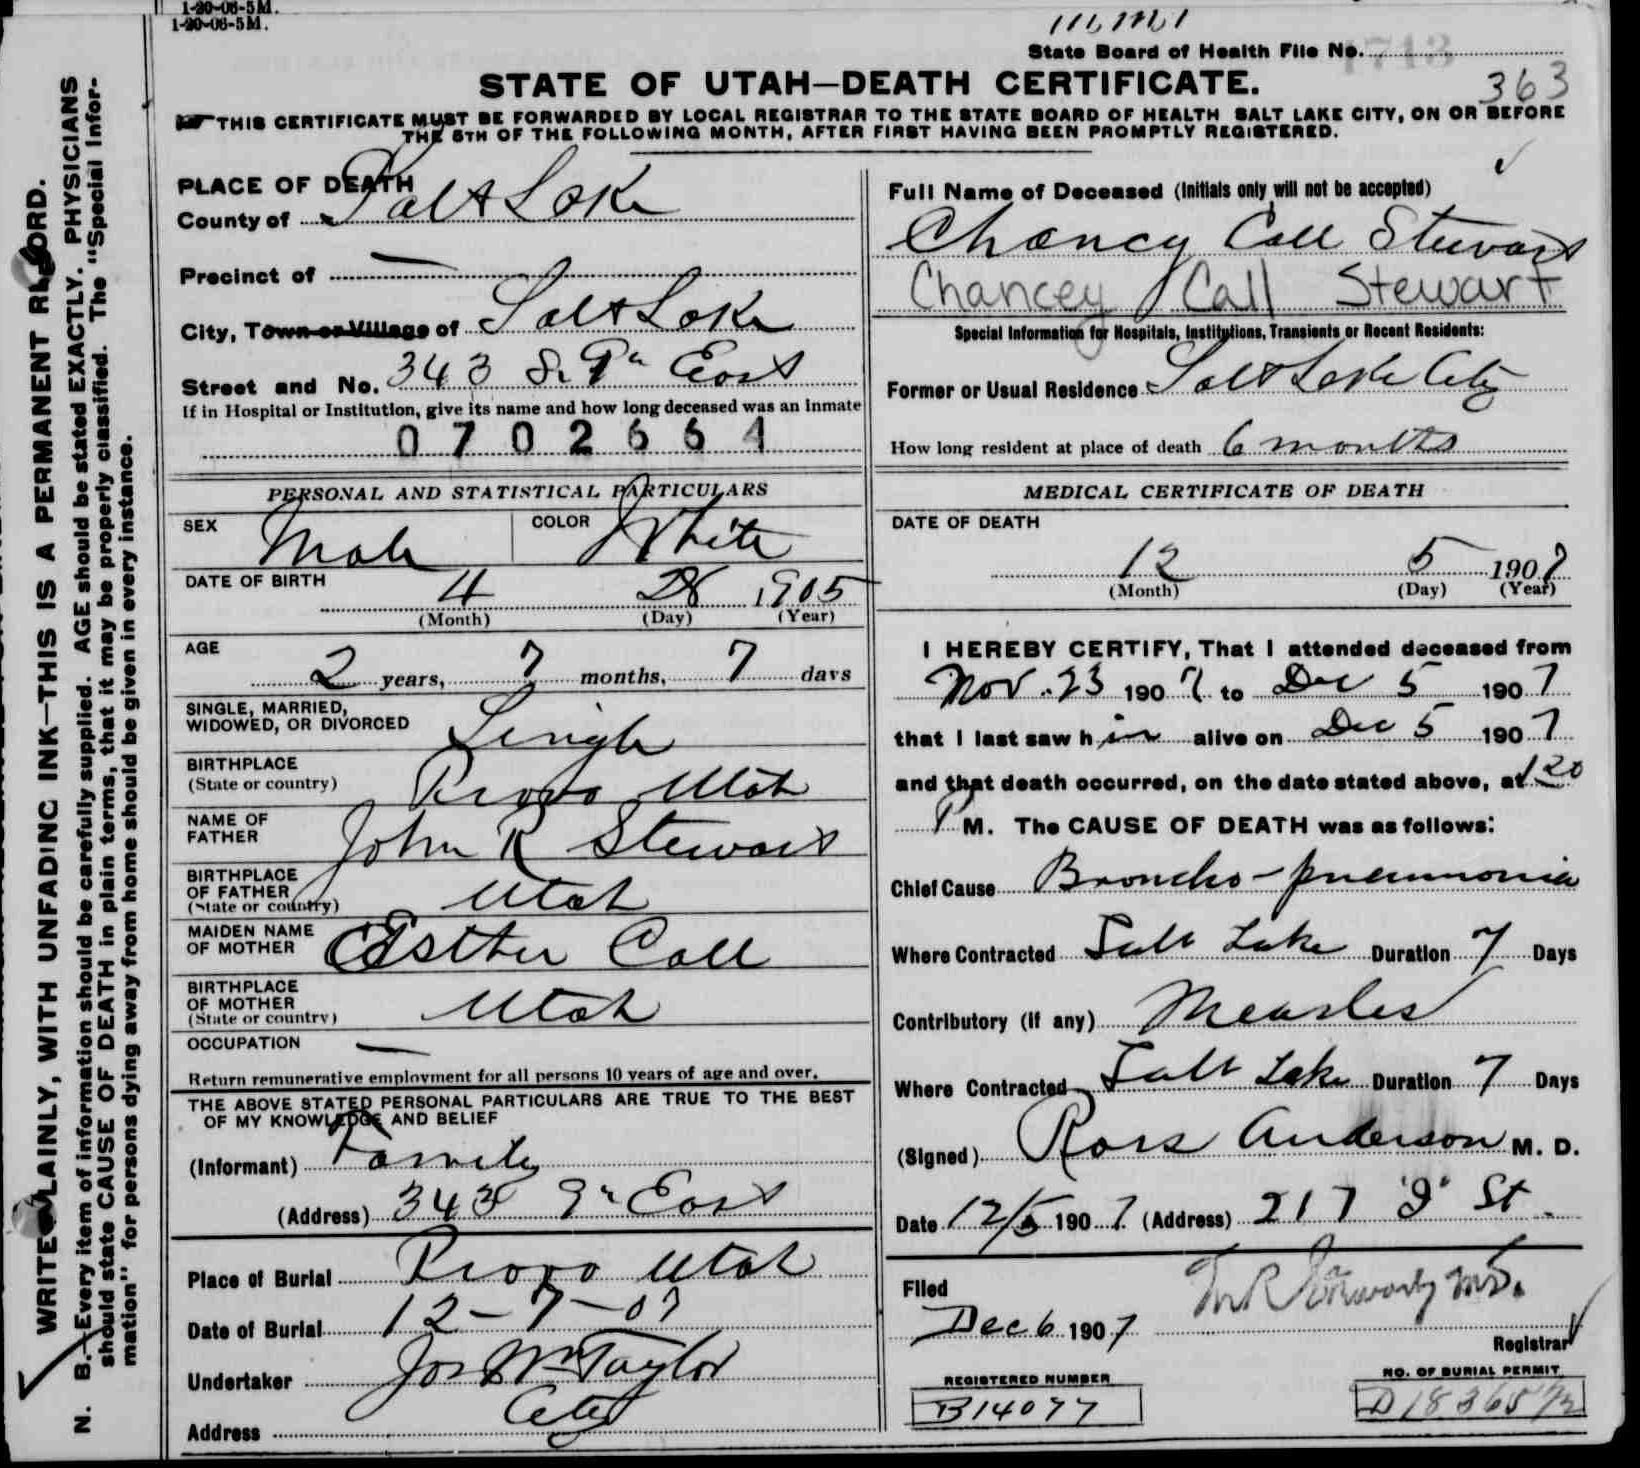 1-20-06-5M.
1-20-06-5M.
State Board of Health File No. 1713
363
STATE OF UTAH—DEATH CERTIFICATE.
THIS CERTIFICATE MUST BE FORWARDED BY LOCAL REGISTRAR TO THE STATE BOARD OF HEALTH SALT LAKE CITY, ON OR BEFORE
THE 5TH OF THE FOLLOWING MONTH, AFTER FIRST HAVING BEEN PROMPTLY REGISTERED.
WRITE PLAINLY, WITH UNFADING INK—THIS IS A PERMANENT RECORD.
N. B.—Every item of information should be carefully supplied. AGE should be stated EXACTLY. PHYSICIANS
should state CAUSE OF DEATH in plain terms, that it may be properly classified. The "Special Infor-
mation" for persons dying away from home should be given in every instance.
PLACE OF DEATH
County of Salt Lake
Precinct of —
City, Town or Village of Salt Lake
Street and No. 343 S. 9th East
If in Hospital or Institution, give its name and how long deceased was an inmate
0702664
PERSONAL AND STATISTICAL PARTICULARS
SEX Male COLOR White
DATE OF BIRTH 4 28 1905
(Month) (Day) (Year)
AGE
2 years, 7 months, 7 days
SINGLE, MARRIED,
WIDOWED, OR DIVORCED Single
BIRTHPLACE
(State or country) Provo Utah
NAME OF
FATHER John R Stewart
BIRTHPLACE
OF FATHER
(State or country) Utah
MAIDEN NAME
OF MOTHER Esther Call
BIRTHPLACE
OF MOTHER
(State or country) Utah
OCCUPATION —
Return remunerative employment for all persons 10 years of age and over.
THE ABOVE STATED PERSONAL PARTICULARS ARE TRUE TO THE BEST
OF MY KNOWLEDGE AND BELIEF
(Informant) Family
(Address) 343 9th East
Place of Burial Provo Utah
Date of Burial 12-7-07
Undertaker Jos Wm Taylor
Address City
Full Name of Deceased (Initials only will not be accepted)
Chancy Call Stewart
Chancey Call Stewart
Special Information for Hospitals, Institutions, Transients or Recent Residents:
Former or Usual Residence Salt Lake City
How long resident at place of death 6 months
MEDICAL CERTIFICATE OF DEATH
DATE OF DEATH
12 5 1907
(Month) (Day) (Year)
I HEREBY CERTIFY, That I attended deceased from
Nov. 23 1907 to Dec 5 1907
that I last saw him alive on Dec 5 1907
and that death occurred, on the date stated above, at 1 20
P M. The CAUSE OF DEATH was as follows:
Chief Cause Broncho-pneumonia
Where Contracted Salt Lake Duration 7 Days
Contributory (if any) Measles
Where Contracted Salt Lake Duration 7 Days
(Signed) Ross Anderson M. D.
Date 12/5 1907 (Address) 217 "J" St.
Filed
Dec 6 1907
Registrar
REGISTERED NUMBER
B14077
NO. OF BURIAL PERMIT
D18365 1/2